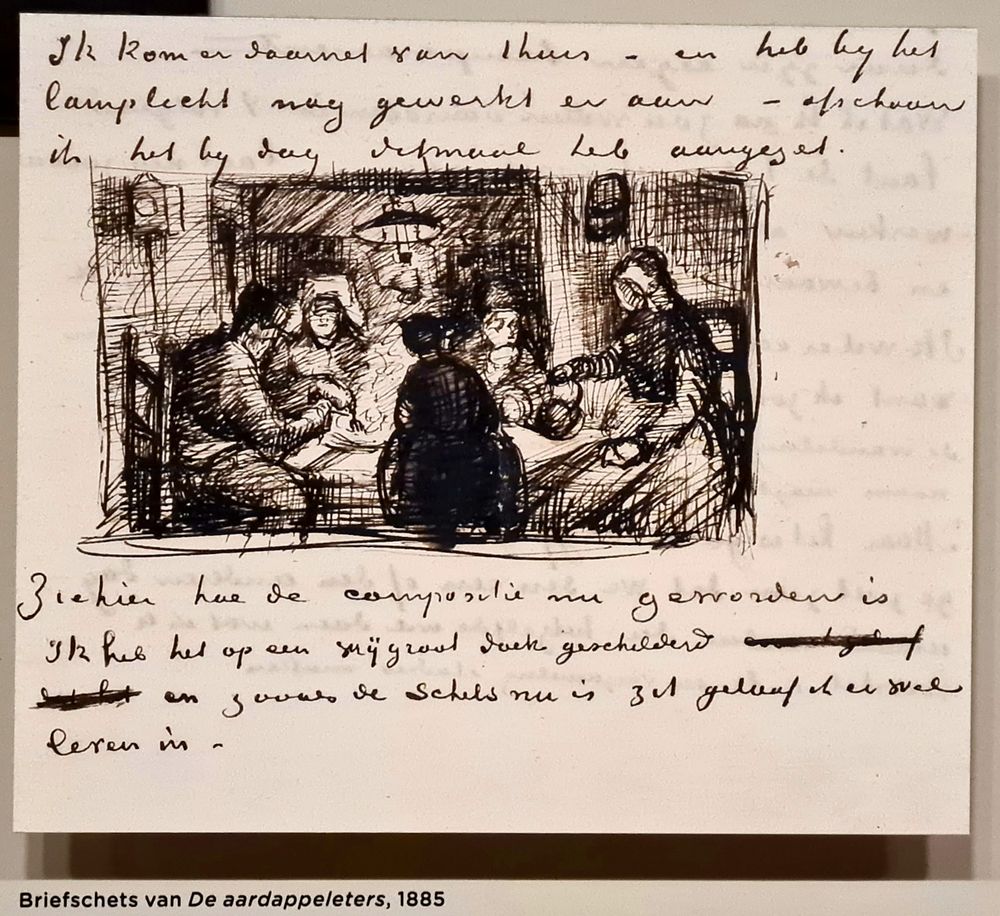 Ik kom er daarnet van thuis – en heb by het
lamplicht nog gewerkt er aan – ofschoon
ik het by dag ditmaal heb aangezet.
Ziehier hoe de compositie nu geworden is
Ik heb het op een vrij groot doek geschilderd
en zooals de schets nu is zit geloof ik er wel
leven in –
Briefschets van De aardappeleters, 1885